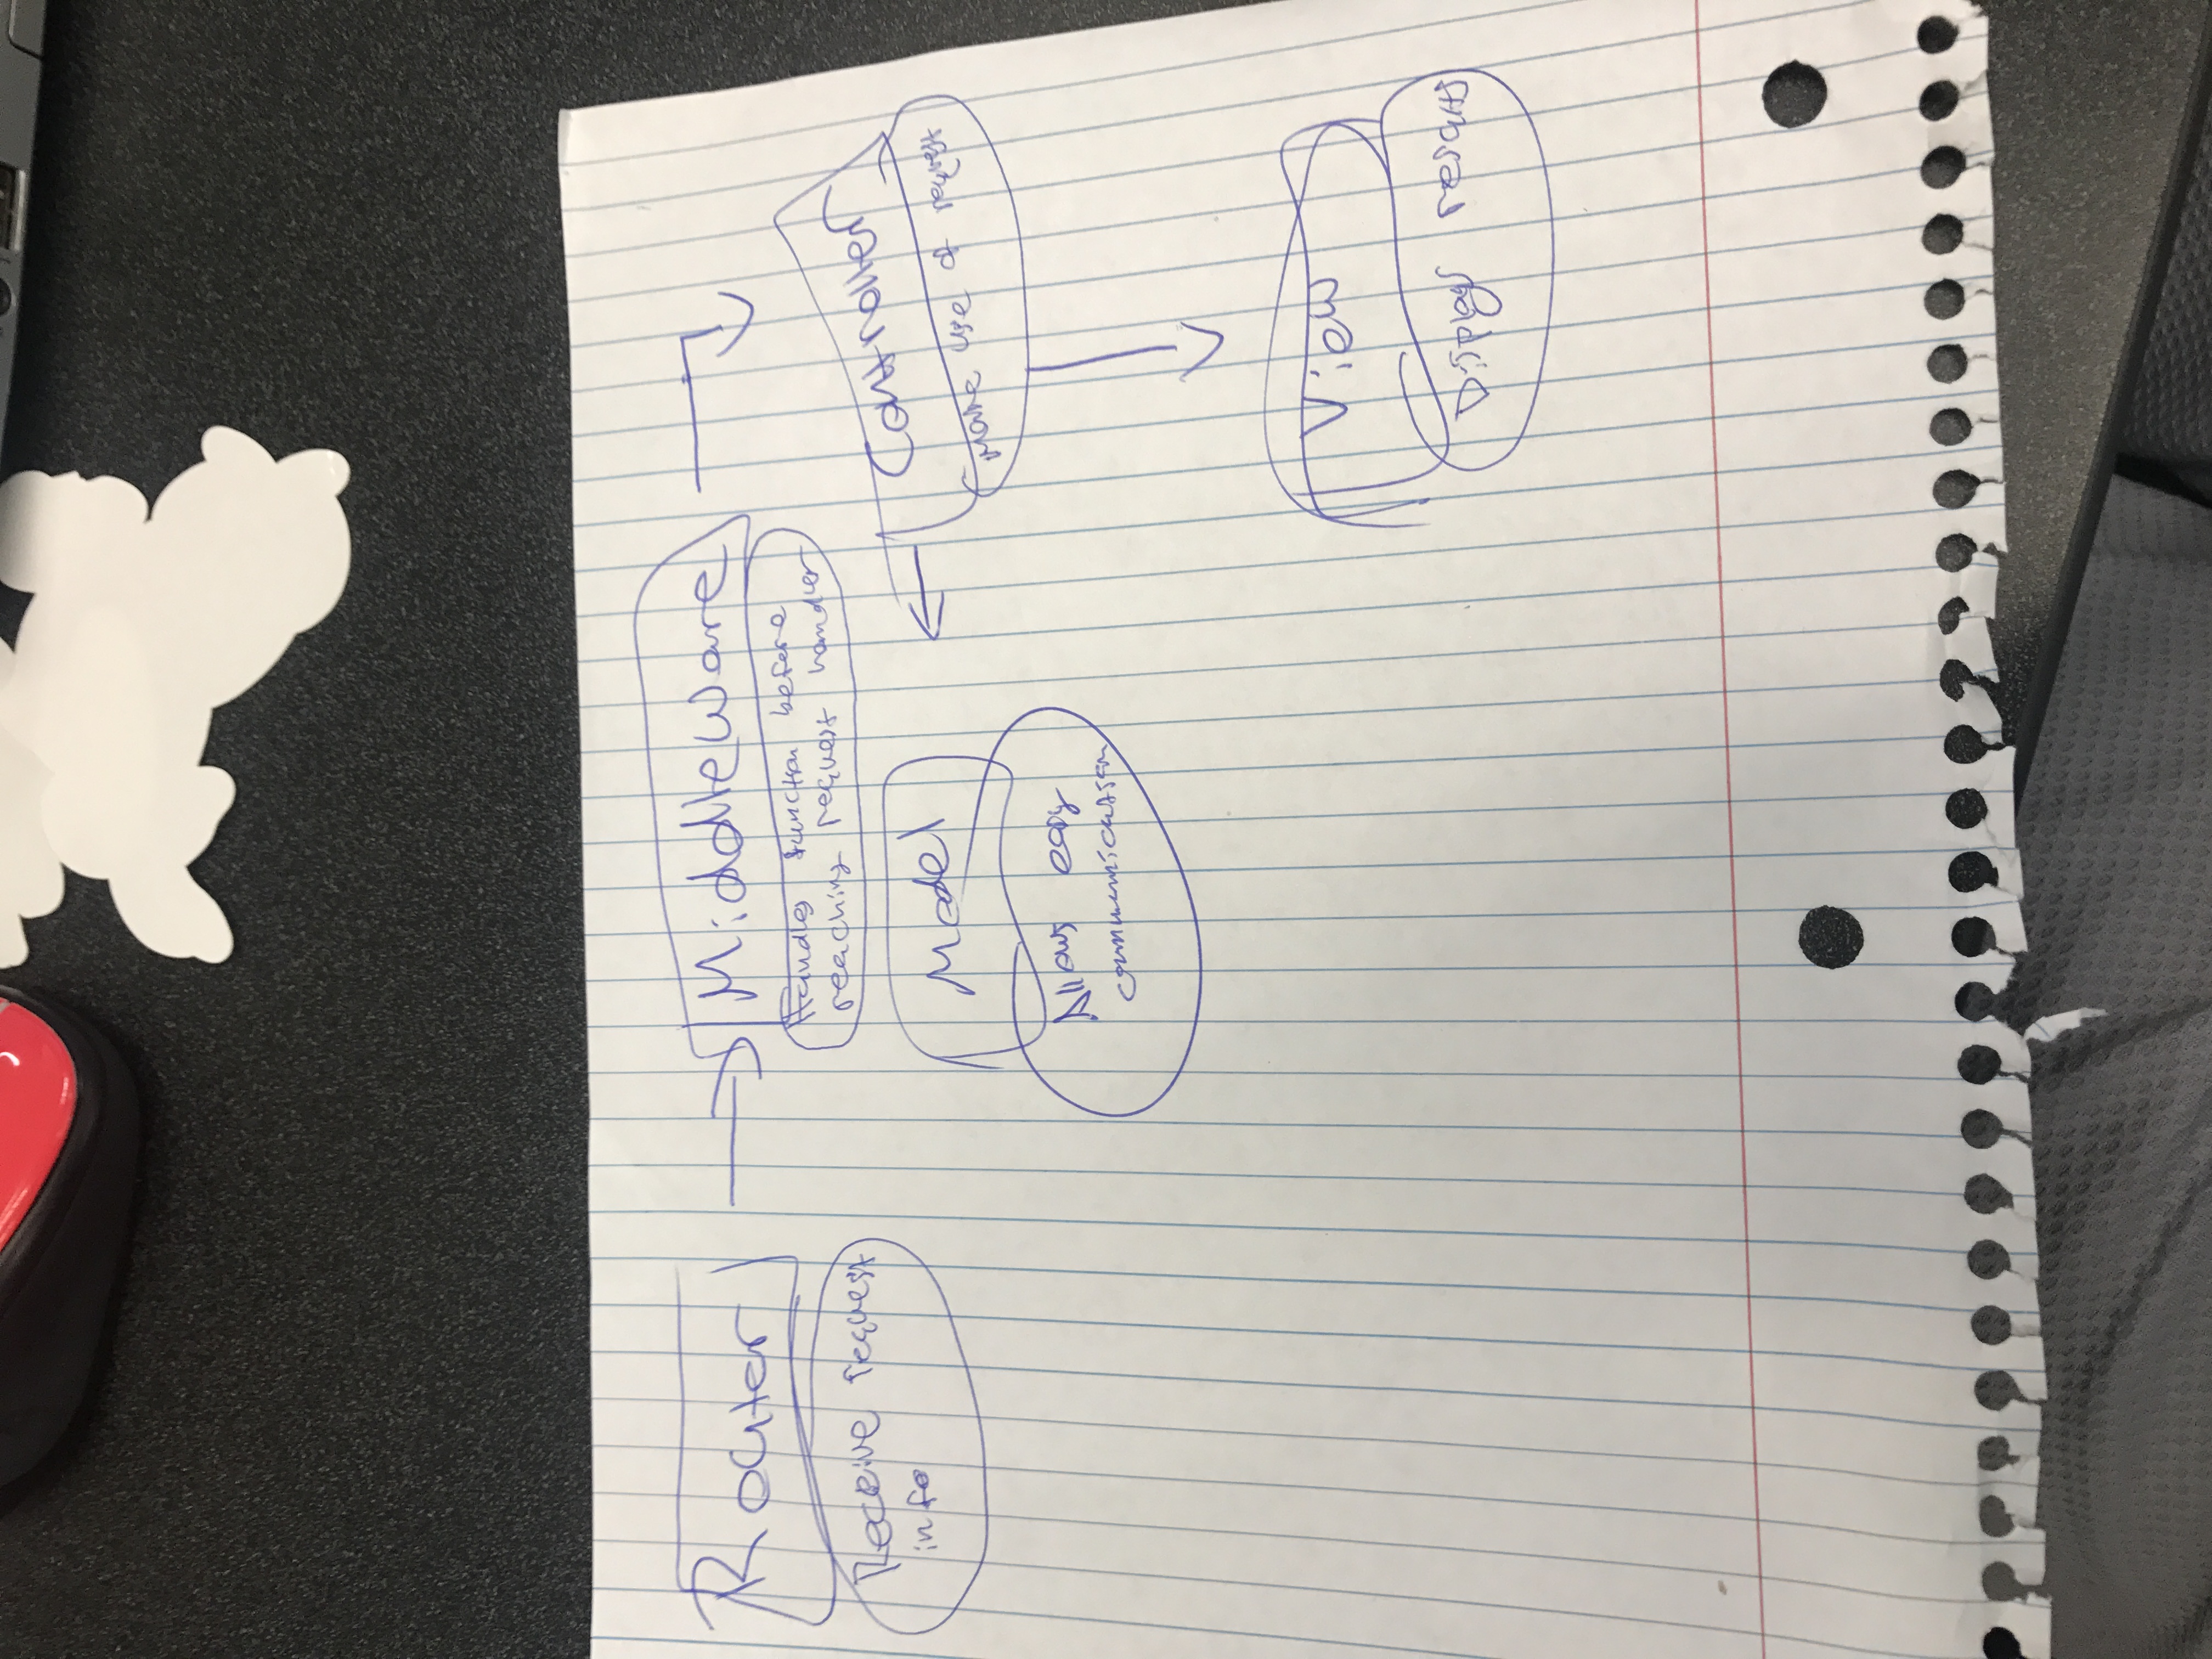 Router
Receive request
info
MiddleWare
Handles function before
reaching request handler
Controller
Make use of request
Model
Allows easy
communication
View
Displays results